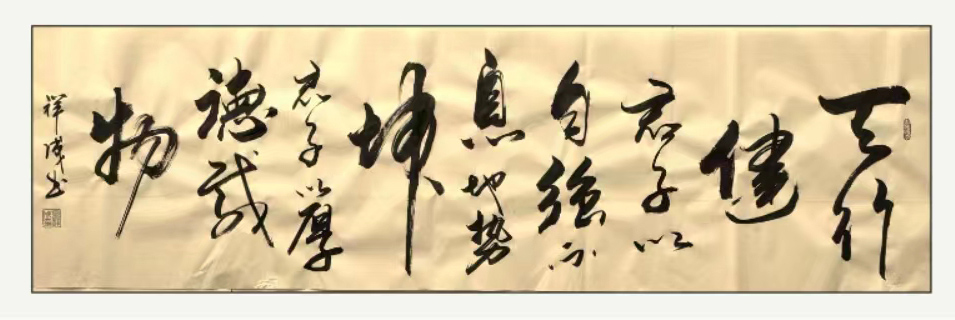 天行
健
君子以
自强不
息地势
坤
君子以厚
德载
物
祥成书